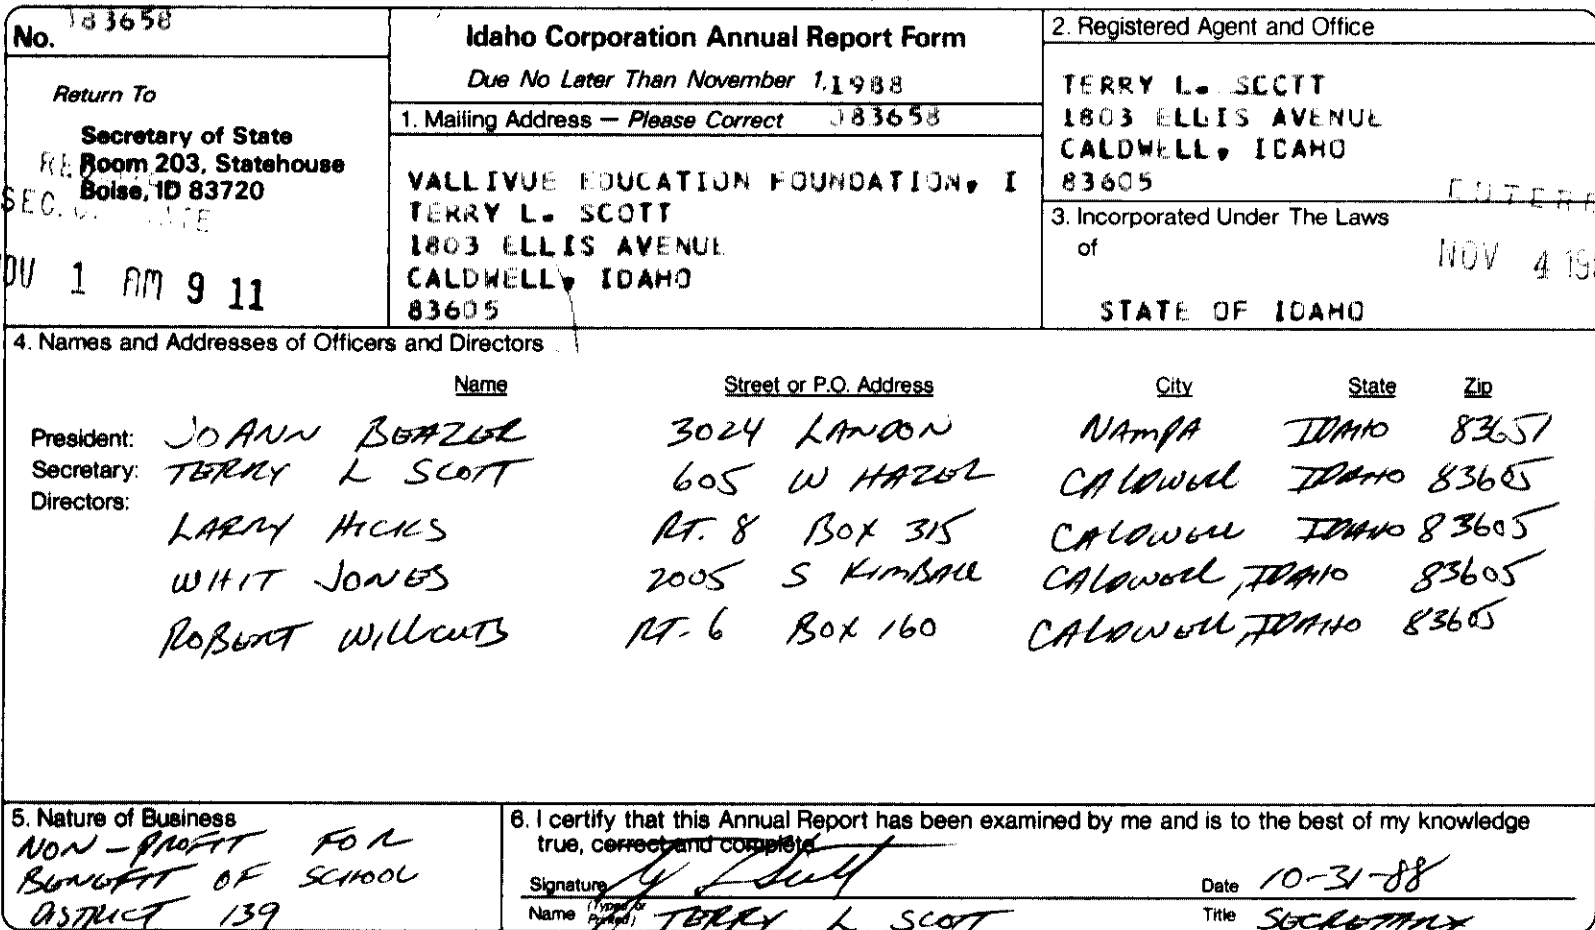 No. J83658
Return To
Secretary of State
Room 203, Statehouse
Boise, ID 83720
1 AM 9 11
Idaho Corporation Annual Report Form
Due No Later Than November 1, 1988
1. Mailing Address — Please Correct J83658
VALLIVUE EDUCATION FOUNDATION, I
TERRY L. SCOTT
1803 ELLIS AVENUE
CALDWELL, IDAHO
83605
2. Registered Agent and Office
TERRY L. SCOTT
1803 ELLIS AVENUE
CALDWELL, IDAHO
83605
3. Incorporated Under The Laws
of
NOV 4 19
STATE OF IDAHO
4. Names and Addresses of Officers and Directors
Name Street or P.O. Address City State Zip
President: JOANN BEAZER 3024 LANDON NAMPA IDAHO 83651
Secretary: TERRY L SCOTT 605 W HAZEL CALDWELL IDAHO 83605
Directors:
LARRY HICKS RT. 8 BOX 315 CALDWELL IDAHO 83605
WHIT JONES 2005 S KIMBALL CALDWELL, IDAHO 83605
ROBERT WILLCUTS RT. 6 BOX 160 CALDWELL, IDAHO 83605
5. Nature of Business
NON-PROFIT FOR
BENEFIT OF SCHOOL
DISTRICT 139
6. I certify that this Annual Report has been examined by me and is to the best of my knowledge
true, correct and complete
Signature Date 10-31-88
Name (Typed or Printed) TERRY L SCOTT Title SECRETARY